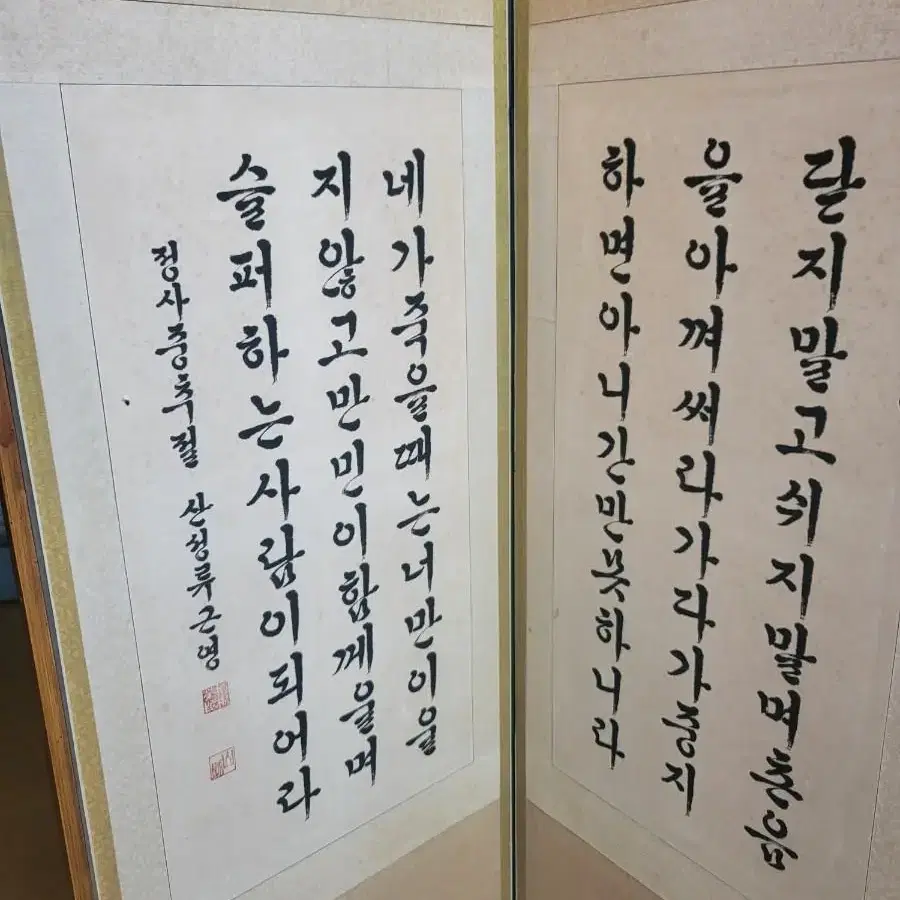 닫지말고쉬지말며촌음
을아껴써라가다가중지
하면아니간만못하니라
네가죽을때는너만이울
지않고만민이함께울며
슬퍼하는사람이되어라
정사중추절 산성류근영